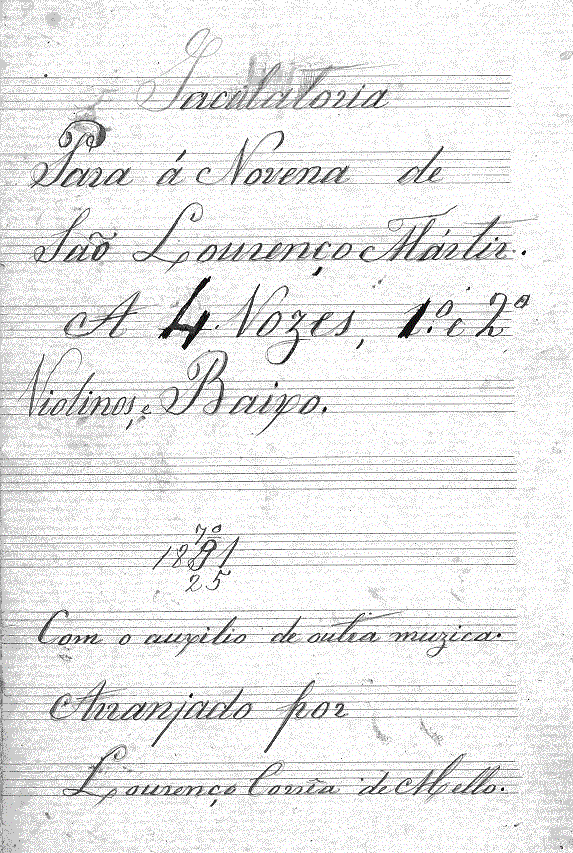 Jaculatoria
Para á Novena de
São Lourenço Mártir.
A 4 Vozes, 1º e 2º
Violinos, e Baixo.
7º
1891
25
Com o auxilio de outra muzica.
Arranjado por
Lourenço Corrêa de Mello.